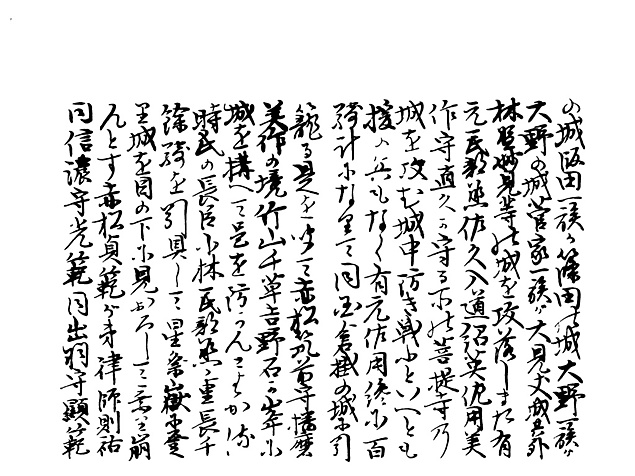 の城飯田一族ヶ篠田の城大野一族ヶ
大野の城菅家一族ヶ大見丈城其外
林野妙見等の城を攻落しまた有
元民部佐久入道詔英佐用美
作守適久ヶ守る所の菩提寺乃
城を攻む城中防き戦ふといへとも
援の兵もなく有元佐用終に百
騎計になりて同国倉掛の城に引
籠る是を聞て赤松筑前守播磨
美作の境竹山千草吉野石ヶ峯に
城を構へて是を防かんとすかゝる
時氏の長臣小林民部丞重長千
餘騎を引具して星祭嶽に登
里城を目の下に見おろして
んとす赤松貞範ヶ弟律師則祐
同信濃守光範同出羽守顕範